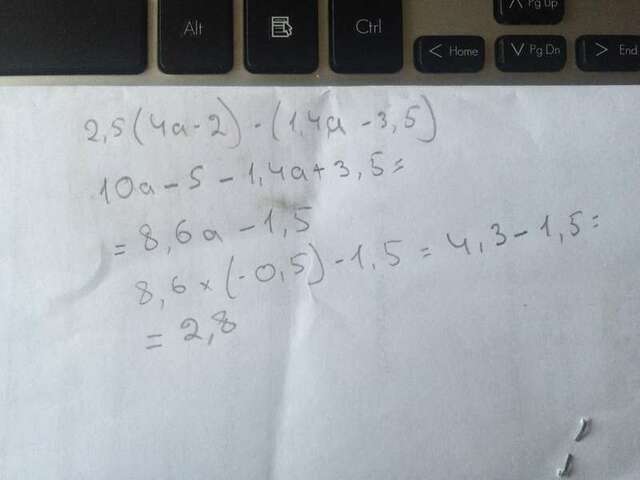 2,5(4a-2)-(1,4a-3,5)
10a-5-1,4a+3,5=
=8,6a-1,5
8,6×(-0,5)-1,5=4,3-1,5=
=2,8
Alt
Ctrl
< Home
∨ Pg Dn
∧ Pg Up
> End